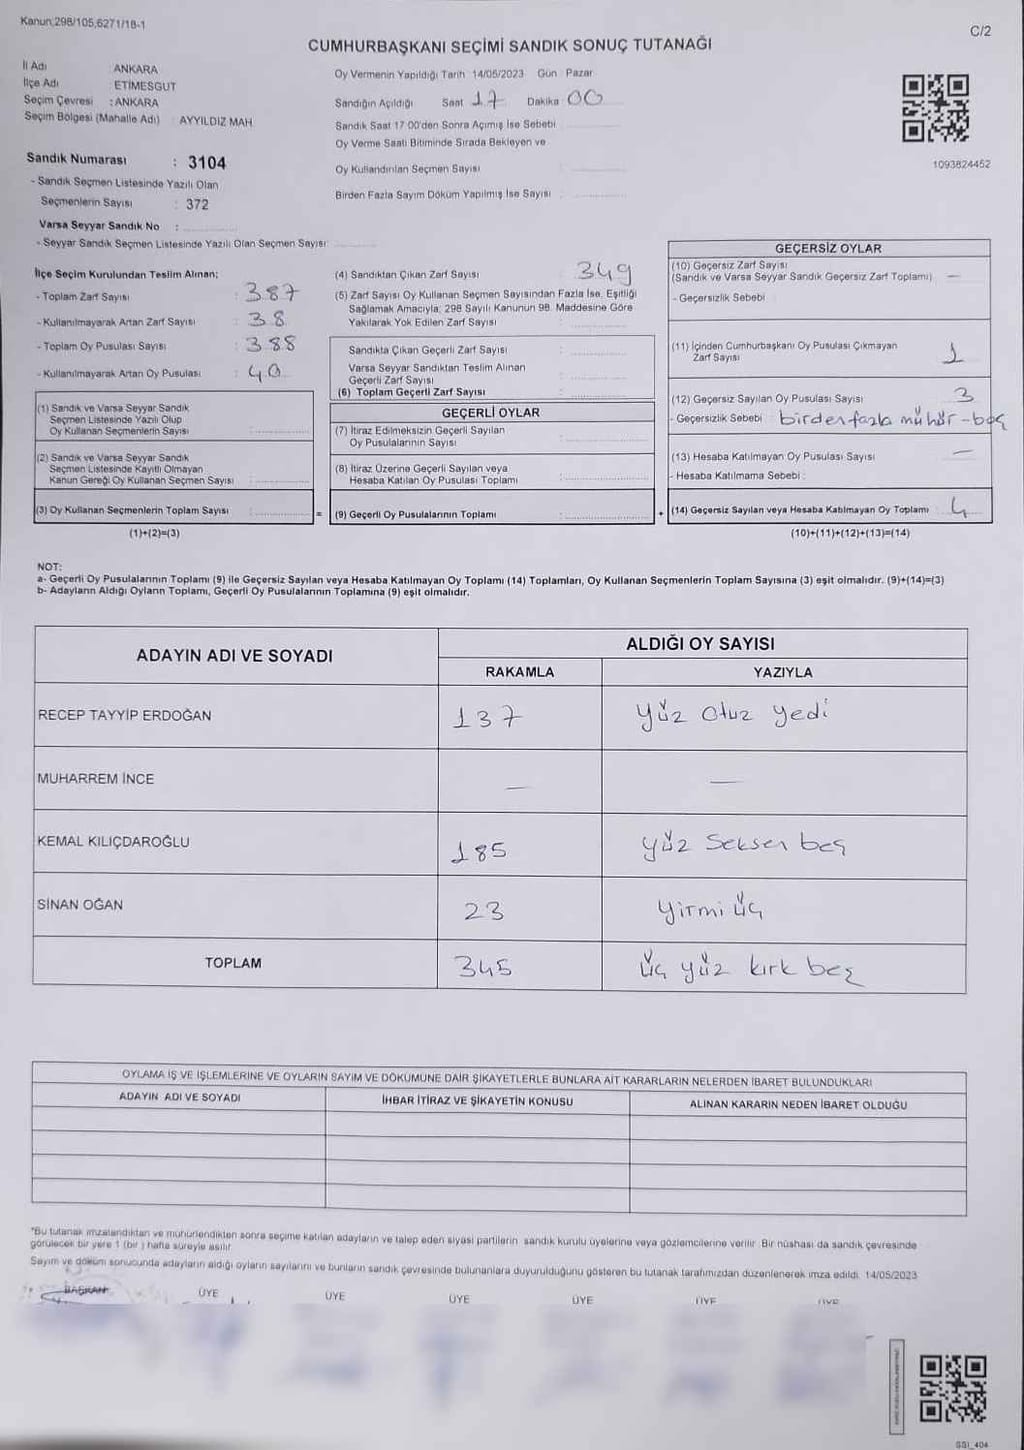 Kanun;298/105,6271/18-1
C/2
CUMHURBAŞKANI SEÇİMİ SANDIK SONUÇ TUTANAĞI
İl Adı ANKARA
İlçe Adı ETİMESGUT
Seçim Çevresi : ANKARA
Seçim Bölgesi (Mahalle Adı) AYYILDIZ MAH
Sandık Numarası : 3104
- Sandık Seçmen Listesinde Yazılı Olan
Seçmenlerin Sayısı : 372
Varsa Seyyar Sandık No :
- Seyyar Sandık Seçmen Listesinde Yazılı Olan Seçmen Sayısı
Oy Vermenin Yapıldığı Tarih 14/05/2023 Gün Pazar
Sandığın Açıldığı Saat 17 Dakika 00
Sandık Saat 17 00'den Sonra Açımış İse Sebebi
Oy Verme Saati Bitiminde Sırada Bekleyen ve
Oy Kullandırılan Seçmen Sayısı
Birden Fazla Sayım Döküm Yapılmış İse Sayısı
1093824452
İlçe Seçim Kurulundan Teslim Alınan;
- Toplam Zarf Sayısı : 387
- Kullanılmayarak Artan Zarf Sayısı : 38
- Toplam Oy Pusulası Sayısı : 388
- Kullanılmayarak Artan Oy Pusulası : 40
(1) Sandık ve Varsa Seyyar Sandık
Seçmen Listesinde Yazılı Olup
Oy Kullanan Seçmenlerin Sayısı
(2) Sandık ve Varsa Seyyar Sandık
Seçmen Listesinde Kayıtlı Olmayan
Kanun Gereği Oy Kullanan Seçmen Sayısı
(3) Oy Kullanan Seçmenlerin Toplam Sayısı
(1)+(2)=(3)
(4) Sandıktan Çıkan Zarf Sayısı 349
(5) Zarf Sayısı Oy Kullanan Seçmen Sayısından Fazla İse, Eşitliği
Sağlamak Amacıyla, 298 Sayılı Kanunun 98. Maddesine Göre
Yakılarak Yok Edilen Zarf Sayısı
Sandıkta Çıkan Geçerli Zarf Sayısı
Varsa Seyyar Sandıktan Teslim Alınan
Geçerli Zarf Sayısı
(6) Toplam Geçerli Zarf Sayısı
GEÇERLİ OYLAR
(7) İtiraz Edilmeksizin Geçerli Sayılan
Oy Pusulalarının Sayısı
(8) İtiraz Üzerine Geçerli Sayılan veya
Hesaba Katılan Oy Pusulası Toplamı
= (9) Geçerli Oy Pusulalarının Toplamı
GEÇERSİZ OYLAR
(10) Geçersiz Zarf Sayısı
(Sandık ve Varsa Seyyar Sandık Geçersiz Zarf Toplamı) —
- Geçersizlik Sebebi
(11) İçinden Cumhurbaşkanı Oy Pusulası Çıkmayan
Zarf Sayısı 1
(12) Geçersiz Sayılan Oy Pusulası Sayısı 3
- Geçersizlik Sebebi : birden fazla mühür - boş
(13) Hesaba Katılmayan Oy Pusulası Sayısı —
- Hesaba Katılmama Sebebi :
+ (14) Geçersiz Sayılan veya Hesaba Katılmayan Oy Toplamı 4
(10)+(11)+(12)+(13)=(14)
NOT:
a- Geçerli Oy Pusulalarının Toplamı (9) ile Geçersiz Sayılan veya Hesaba Katılmayan Oy Toplamı (14) Toplamları, Oy Kullanan Seçmenlerin Toplam Sayısına (3) eşit olmalıdır. (9)+(14)=(3)
b- Adayların Aldığı Oyların Toplamı, Geçerli Oy Pusulalarının Toplamına (9) eşit olmalıdır.
ADAYIN ADI VE SOYADI
ALDIĞI OY SAYISI
RAKAMLA YAZIYLA
RECEP TAYYİP ERDOĞAN 137 yüz otuz yedi
MUHARREM İNCE — —
KEMAL KILIÇDAROĞLU 185 yüz seksen beş
SİNAN OĞAN 23 yirmi üç
TOPLAM 345 üç yüz kırk beş
OYLAMA İŞ VE İŞLEMLERİNE VE OYLARIN SAYIM VE DÖKÜMÜNE DAİR ŞİKAYETLERLE BUNLARA AİT KARARLARIN NELERDEN İBARET BULUNDUKLARI
ADAYIN ADI VE SOYADI İHBAR İTİRAZ VE ŞİKAYETİN KONUSU ALINAN KARARIN NEDEN İBARET OLDUĞU
"Bu tutanak imzalandıktan ve mühürlendikten sonra seçime katılan adayların ve talep eden siyasi partilerin sandık kurulu üyelerine veya gözlemcilerine verilir. Bir nüshası da sandık çevresinde
görülecek bir yere 1 (bir ) hafta süreyle asılır
Sayım ve döküm sonucunda adayların aldığı oyların sayılarını ve bunların sandık çevresinde bulunanlara duyurulduğunu gösteren bu tutanak tarafımızdan düzenlenerek imza edildi. 14/05/2023
BAŞKAN ÜYE ÜYE ÜYE ÜYE ÜYE ÜYE
SSI_404